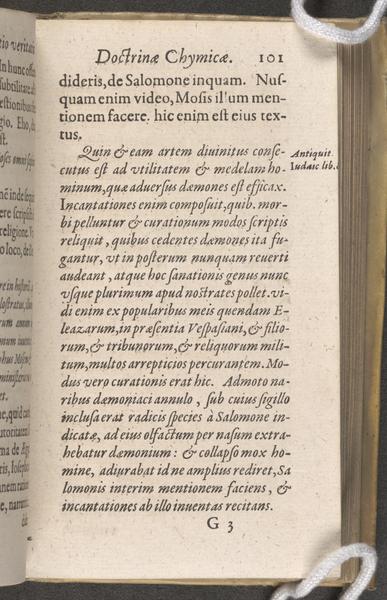 Doctrinæ Chymicæ. 101
dideris, de Salomone inquam. Nus-
quam enim video, Mosis il'um men-
tionem facere. hic enim est eius tex-
tus.
Quin & eam artem diuinitus conse-
cutus est ad vtilitatem & medelam ho-
minum, quæ aduersus dæmones est efficax.
Incantationes enim composuit, quib. mor-
bi pelluntur & curationum modos scriptis
reliquit, quibus cedentes dæmones ita fu-
gantur, vt in posterum nunquam reuerti
audeant, atque hoc sanationis genus nunc
vsque plurimum apud nostrates pollet. vi-
di enim ex popularibus meis quendam E-
leazarum, in præsentia Vespasiani, & filio-
rum, & tribunorum, & reliquorum mili-
tum, multos arrepticios percurantem. Mo-
dus vero curationis erat hic. Admoto na-
ribus dæmoniaci annulo, sub cuius sigillo
inclusa erat radicis species à Salomone in-
dicatæ, ad eius olfactum per nasum extra-
hebatur dæmonium: & collapso mox ho-
mine, adiurabat id ne amplius rediret, Sa
lomonis interim mentionem faciens, &
incantationes ab illo inuentas recitans.
G 3
Antiquit.
Iudaic lib.